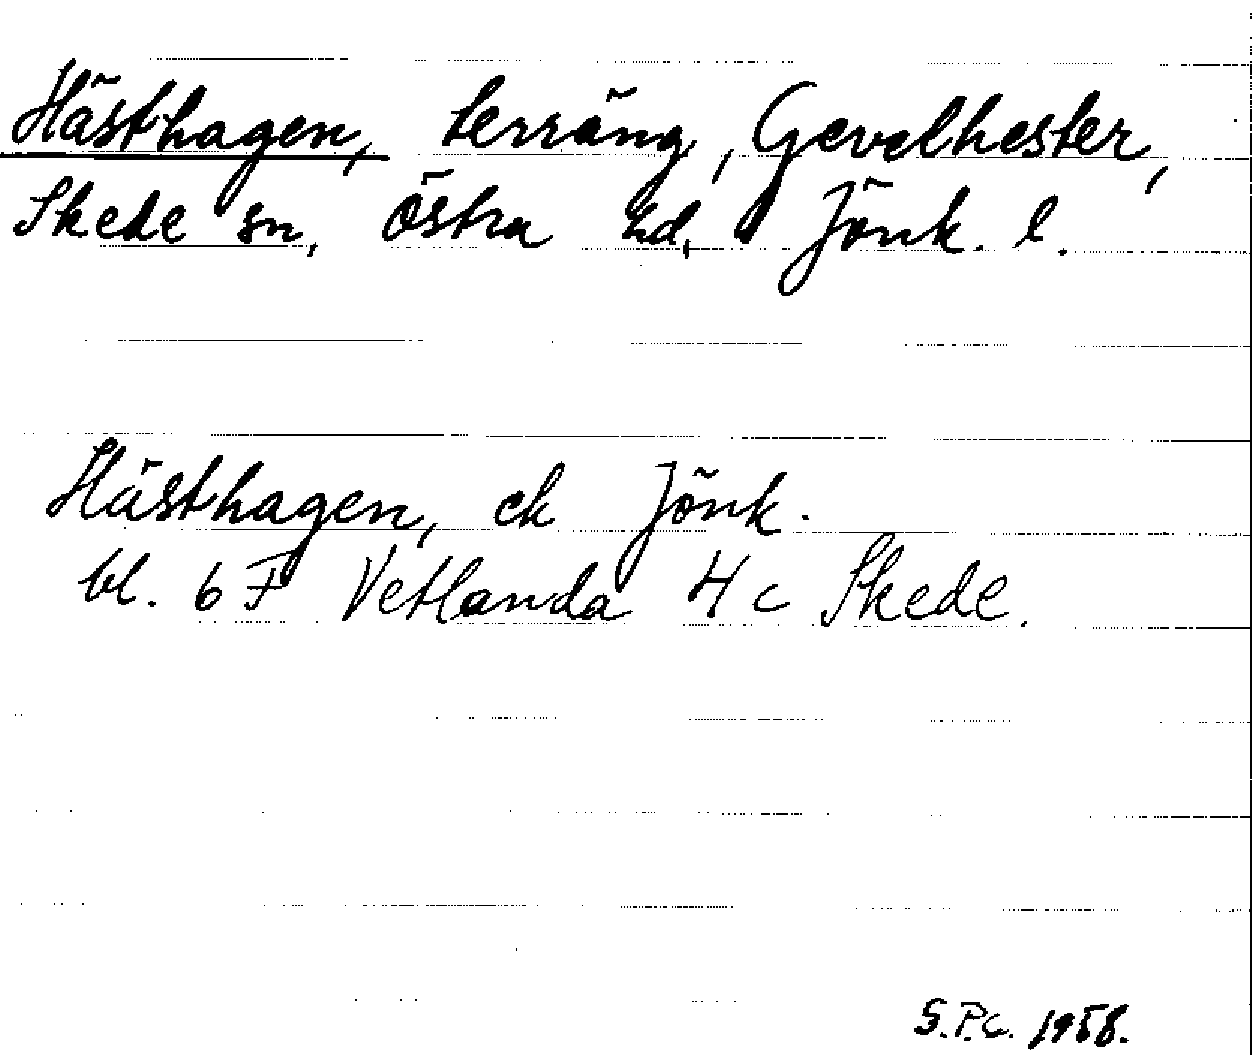 Hästhagen, terräng, Gevelhester,
Skede sn, Östra hd, Jönk. l.
Hästhagen, ek Jönk.
bl. 6 F Vetlanda 4 c Skede.
S.P.C. 1958.